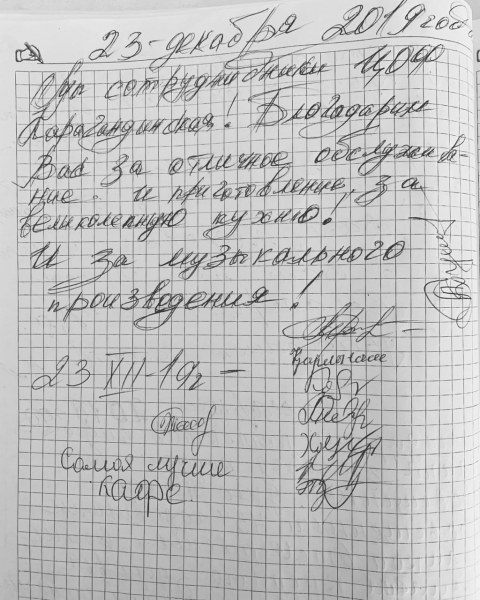 23-декабря 2019 год.
сотрудники ЦОФ
Карагандинская! Благодарим
Вас за отличное обслужива-
ние. и приготовление, за
великолепную кухню!
И за музыкального
произведения!
23 XII-19г -
Самая лучше
кафе.